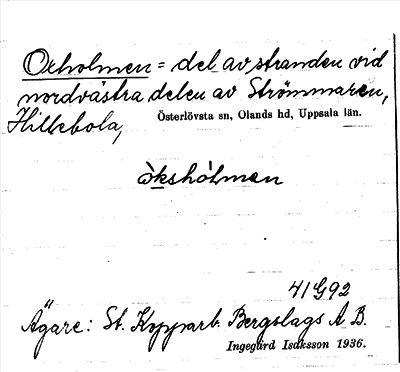 Oxholmen = del av stranden vid
nordvästra delen av Strömmaren,
Hillebola, Österlövsta sn, Olands hd, Uppsala län.
òkshólmen
41G92
Ägare: St. Kopparb. Bergslags A.B.
Ingegärd Isaksson 1936.